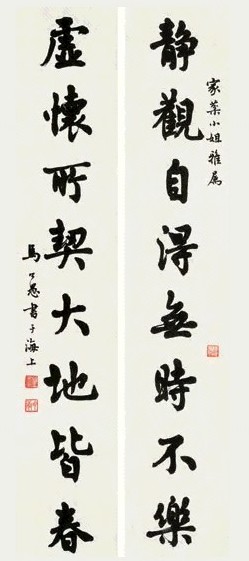 家葉小姐雅屬
靜觀自得無時不樂
虛懷所契大地皆春
馬公愚書于海上